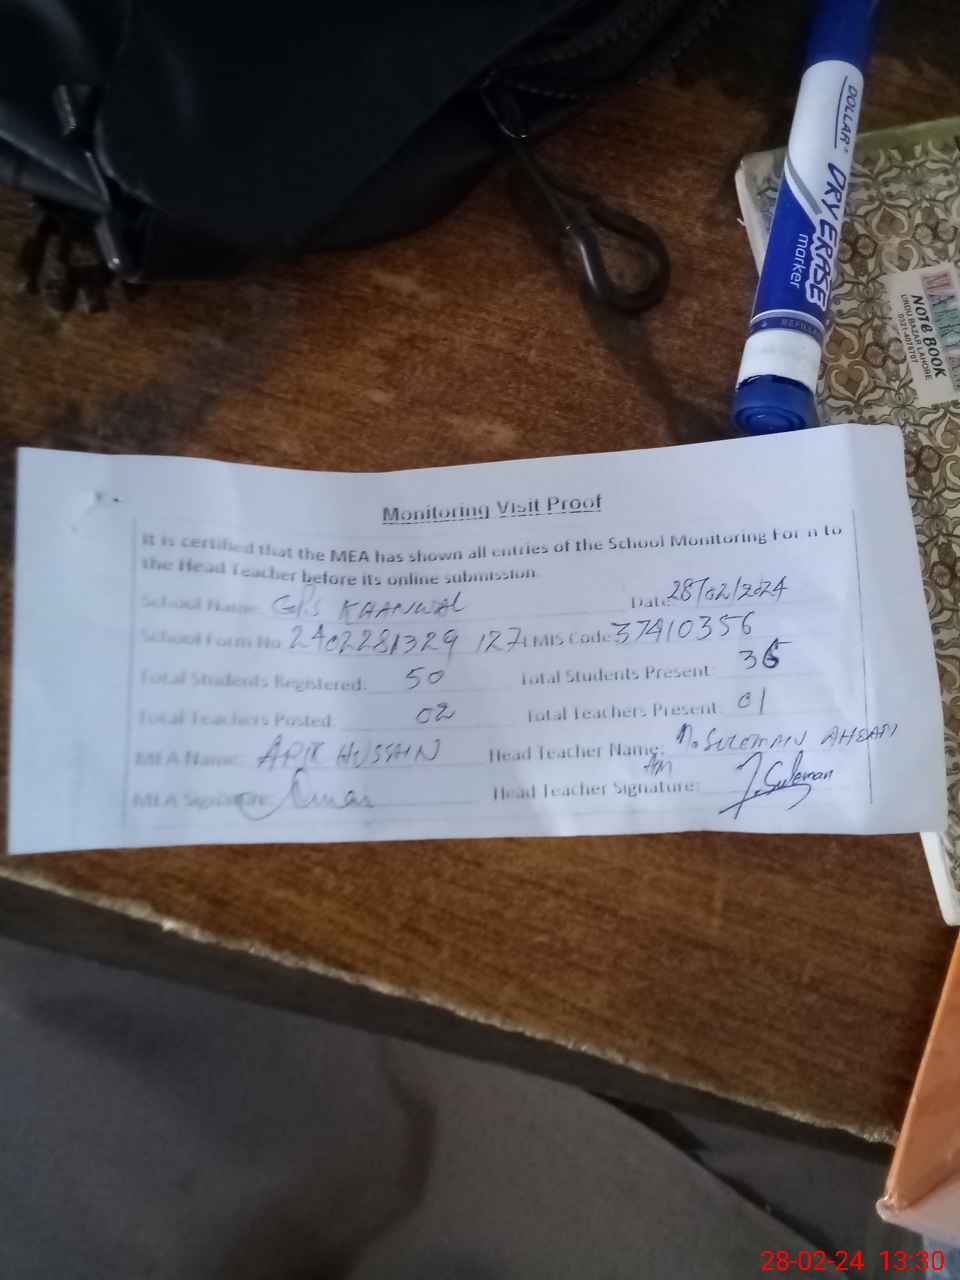 DOLLAR
DRY ERASE
marker
NOTE BOOK
URDU BAZAR LAHORE
Monitoring Visit Proof
It is certified that the MEA has shown all entries of the School Monitoring Form to
the Head Teacher before its online submission.
School Name: GPS KAANWAL Date: 28/02/2024
School Form No 2402281329 127 EMIS Code: 37410356
Total Students Registered: 50 Total Students Present: 36
Total Teachers Posted: 02 Total Teachers Present: 01
MEA Name: HUSSAIN Head Teacher Name: M. SULEMAN AHEAM
MEA Signature: Head Teacher Signature: Suleman
28-02-24 13:30